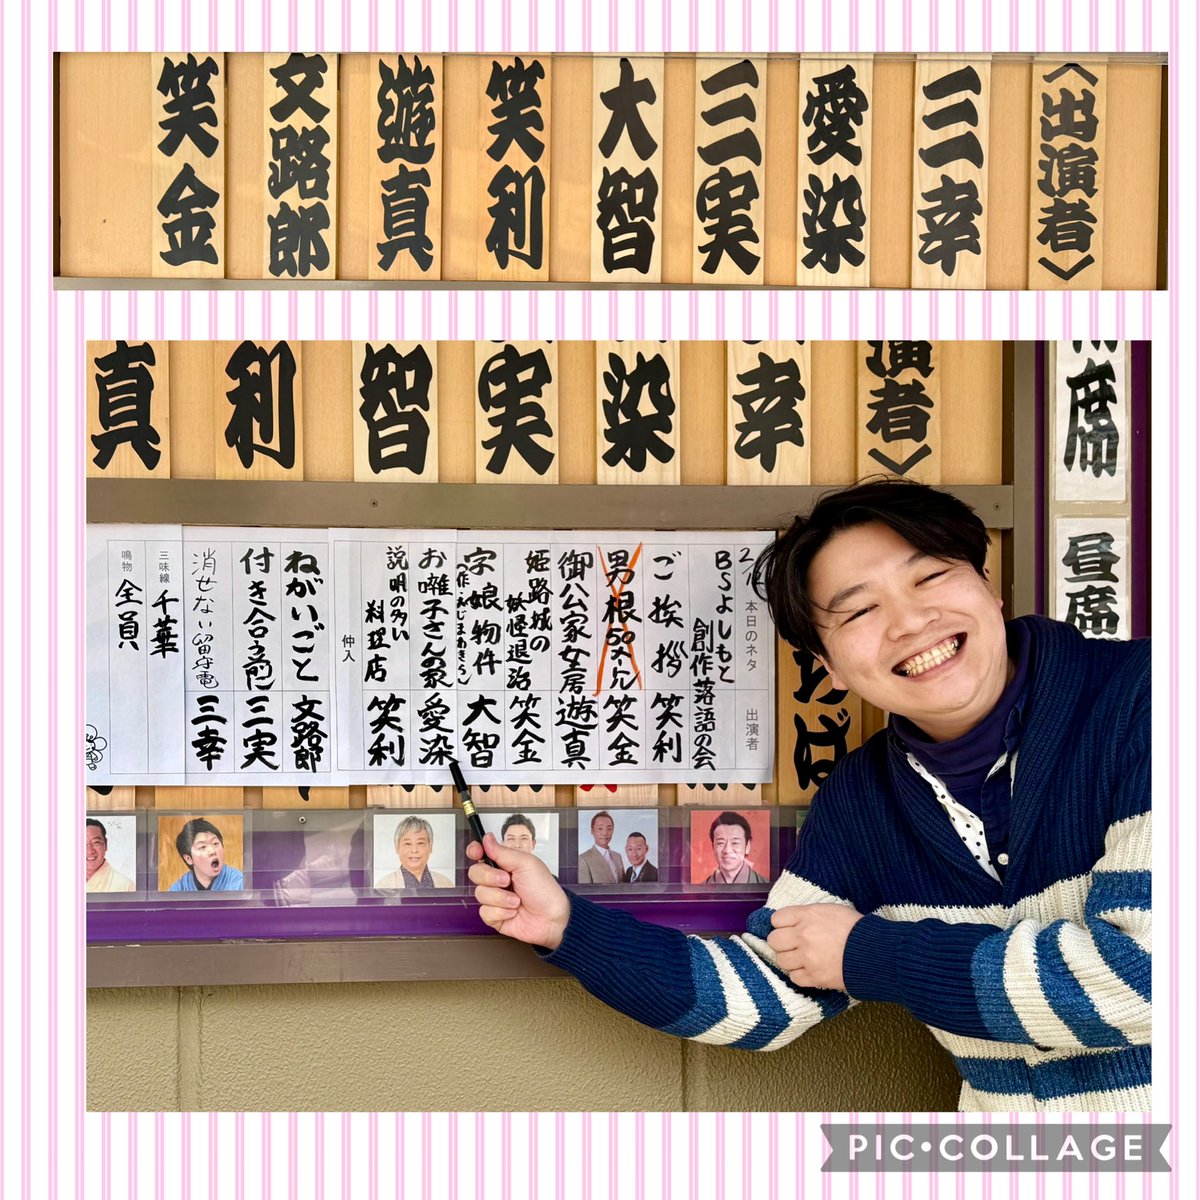 〈出演者〉
三幸
愛染
三実
大智
笑利
遊真
文路郎
笑金
演者〉
幸
染
実
智
利
真
席
昼席
本日のネタ 出演者
BSよしもと
創作落語の会
ご挨拶 笑利
男根50メートル 笑金
御公家女房 遊真
姫路城の
妖怪退治 笑金
字娘物件 大智
お囃子さんの恋 愛染
説明の多い
料理店 笑利
仲入
ねがいごと 文路郎
付き合う前 三実
消せない留守電 三幸
三味線 千華
鳴物 全員
PIC•COLLAGE